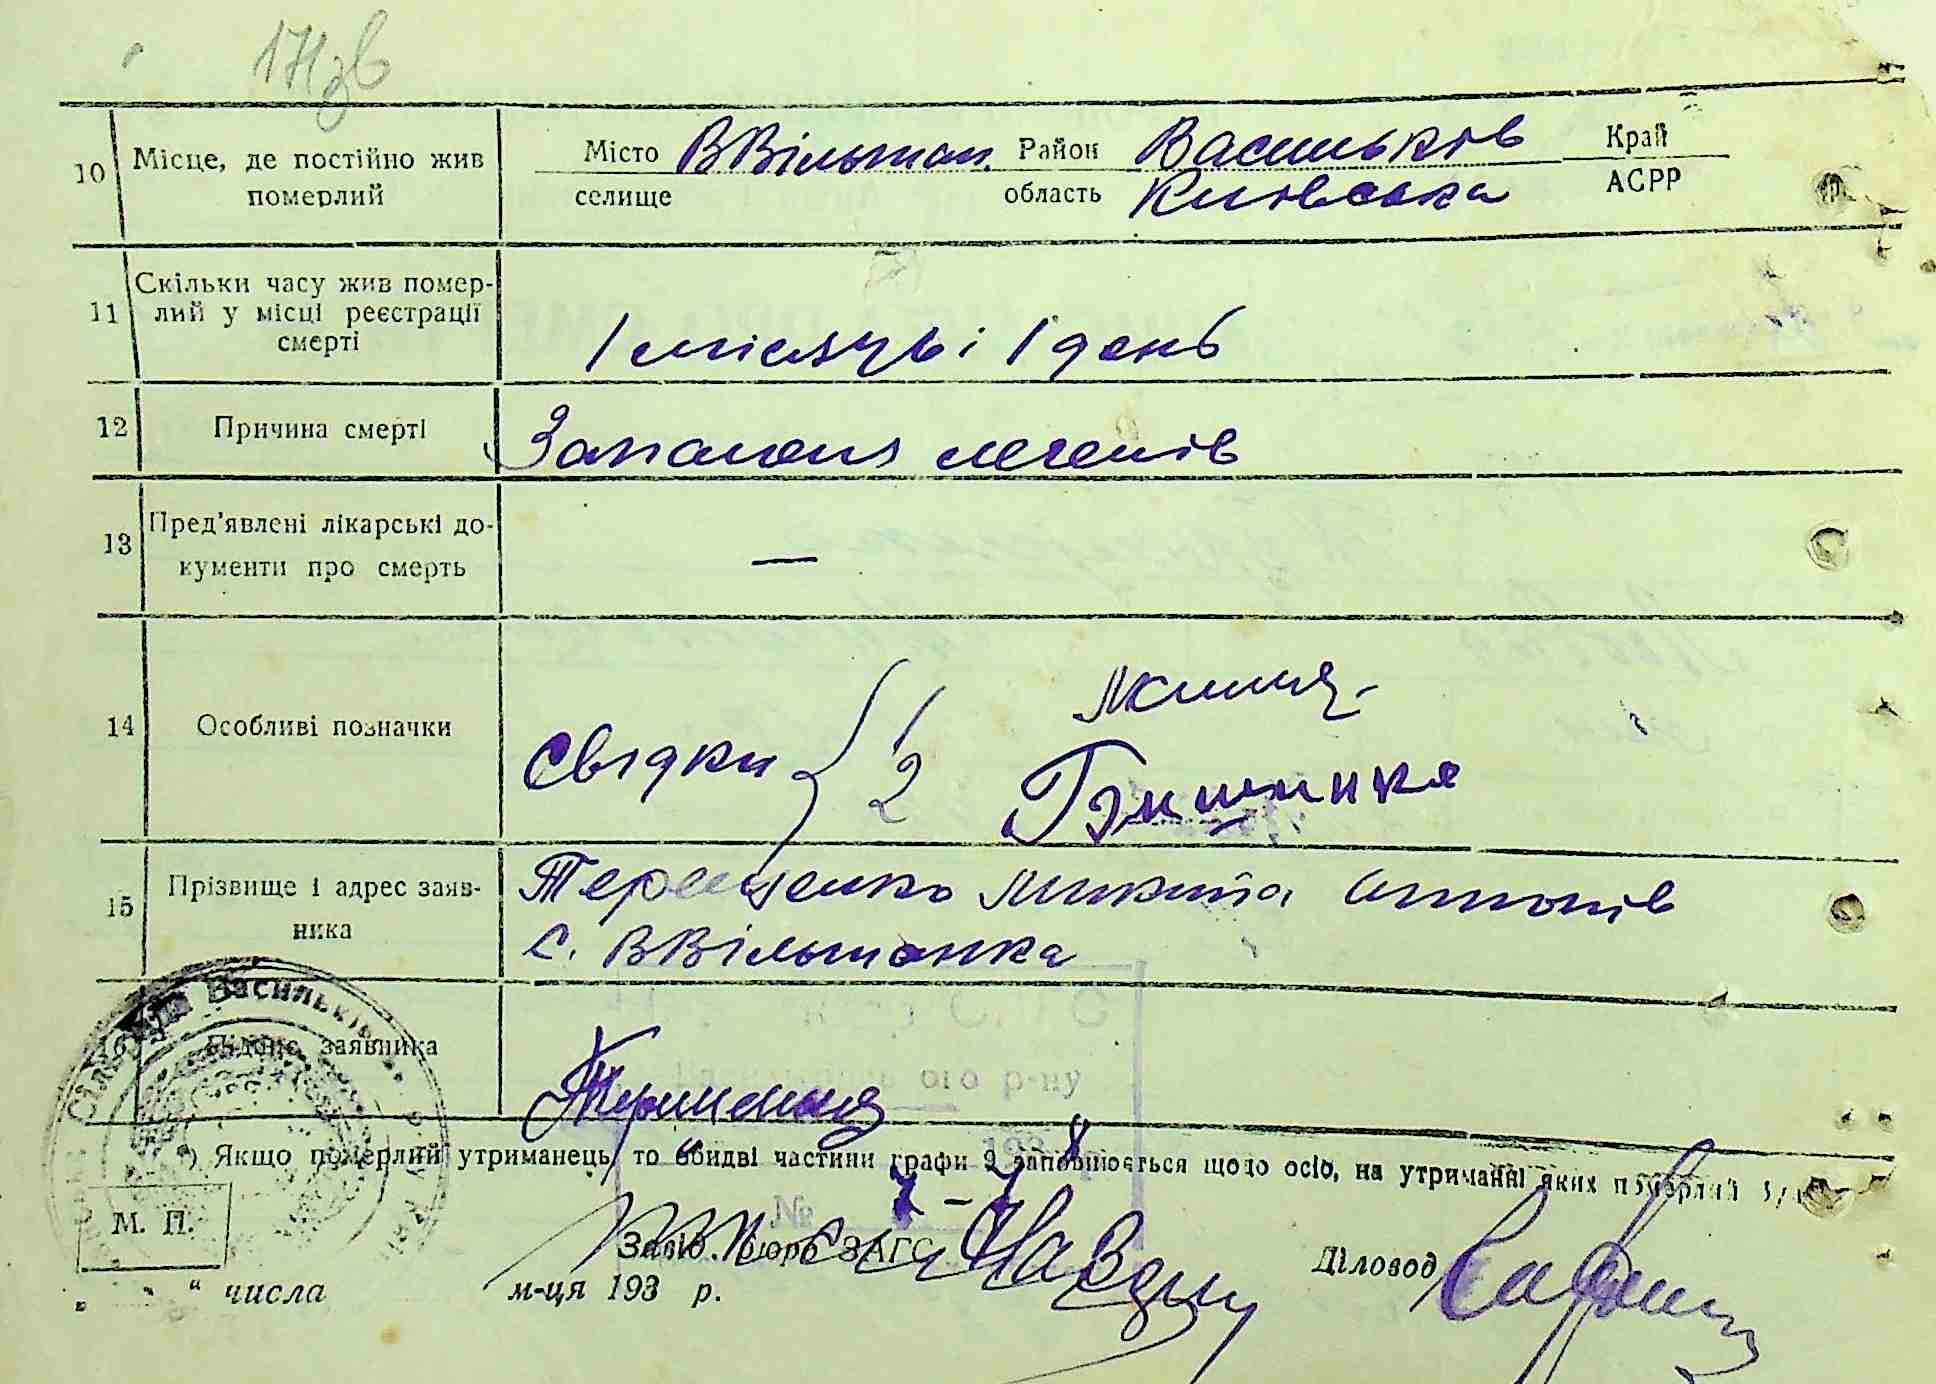 17 зв
10 Місце, де постійно жив померлий
Місто селище ВВільшан. Район Васильків Край
область Київська АСРР
11 Скільки часу жив помер-
лий у місці реєстрації
смерті
1 місяць і 1 день
12 Причина смерті Запаленя легенів
13 Пред'явлені лікарські до-
кументи про смерть —
14 Особливі позначки Свідки { 1
2
15 Прізвище і адрес заяв-
ника
Терещенко Микита Антонів
с. ВВільшанка
16 Підпис заявника
ого р-ну
*) Якщо померлий утриманець, то обидві частини графи 9 заповнюється щодо осіб, на утриманні яких померлий
№
М. П.
Завід. бюро ЗАГС
Діловод
„ “ числа м-ця 193 р.